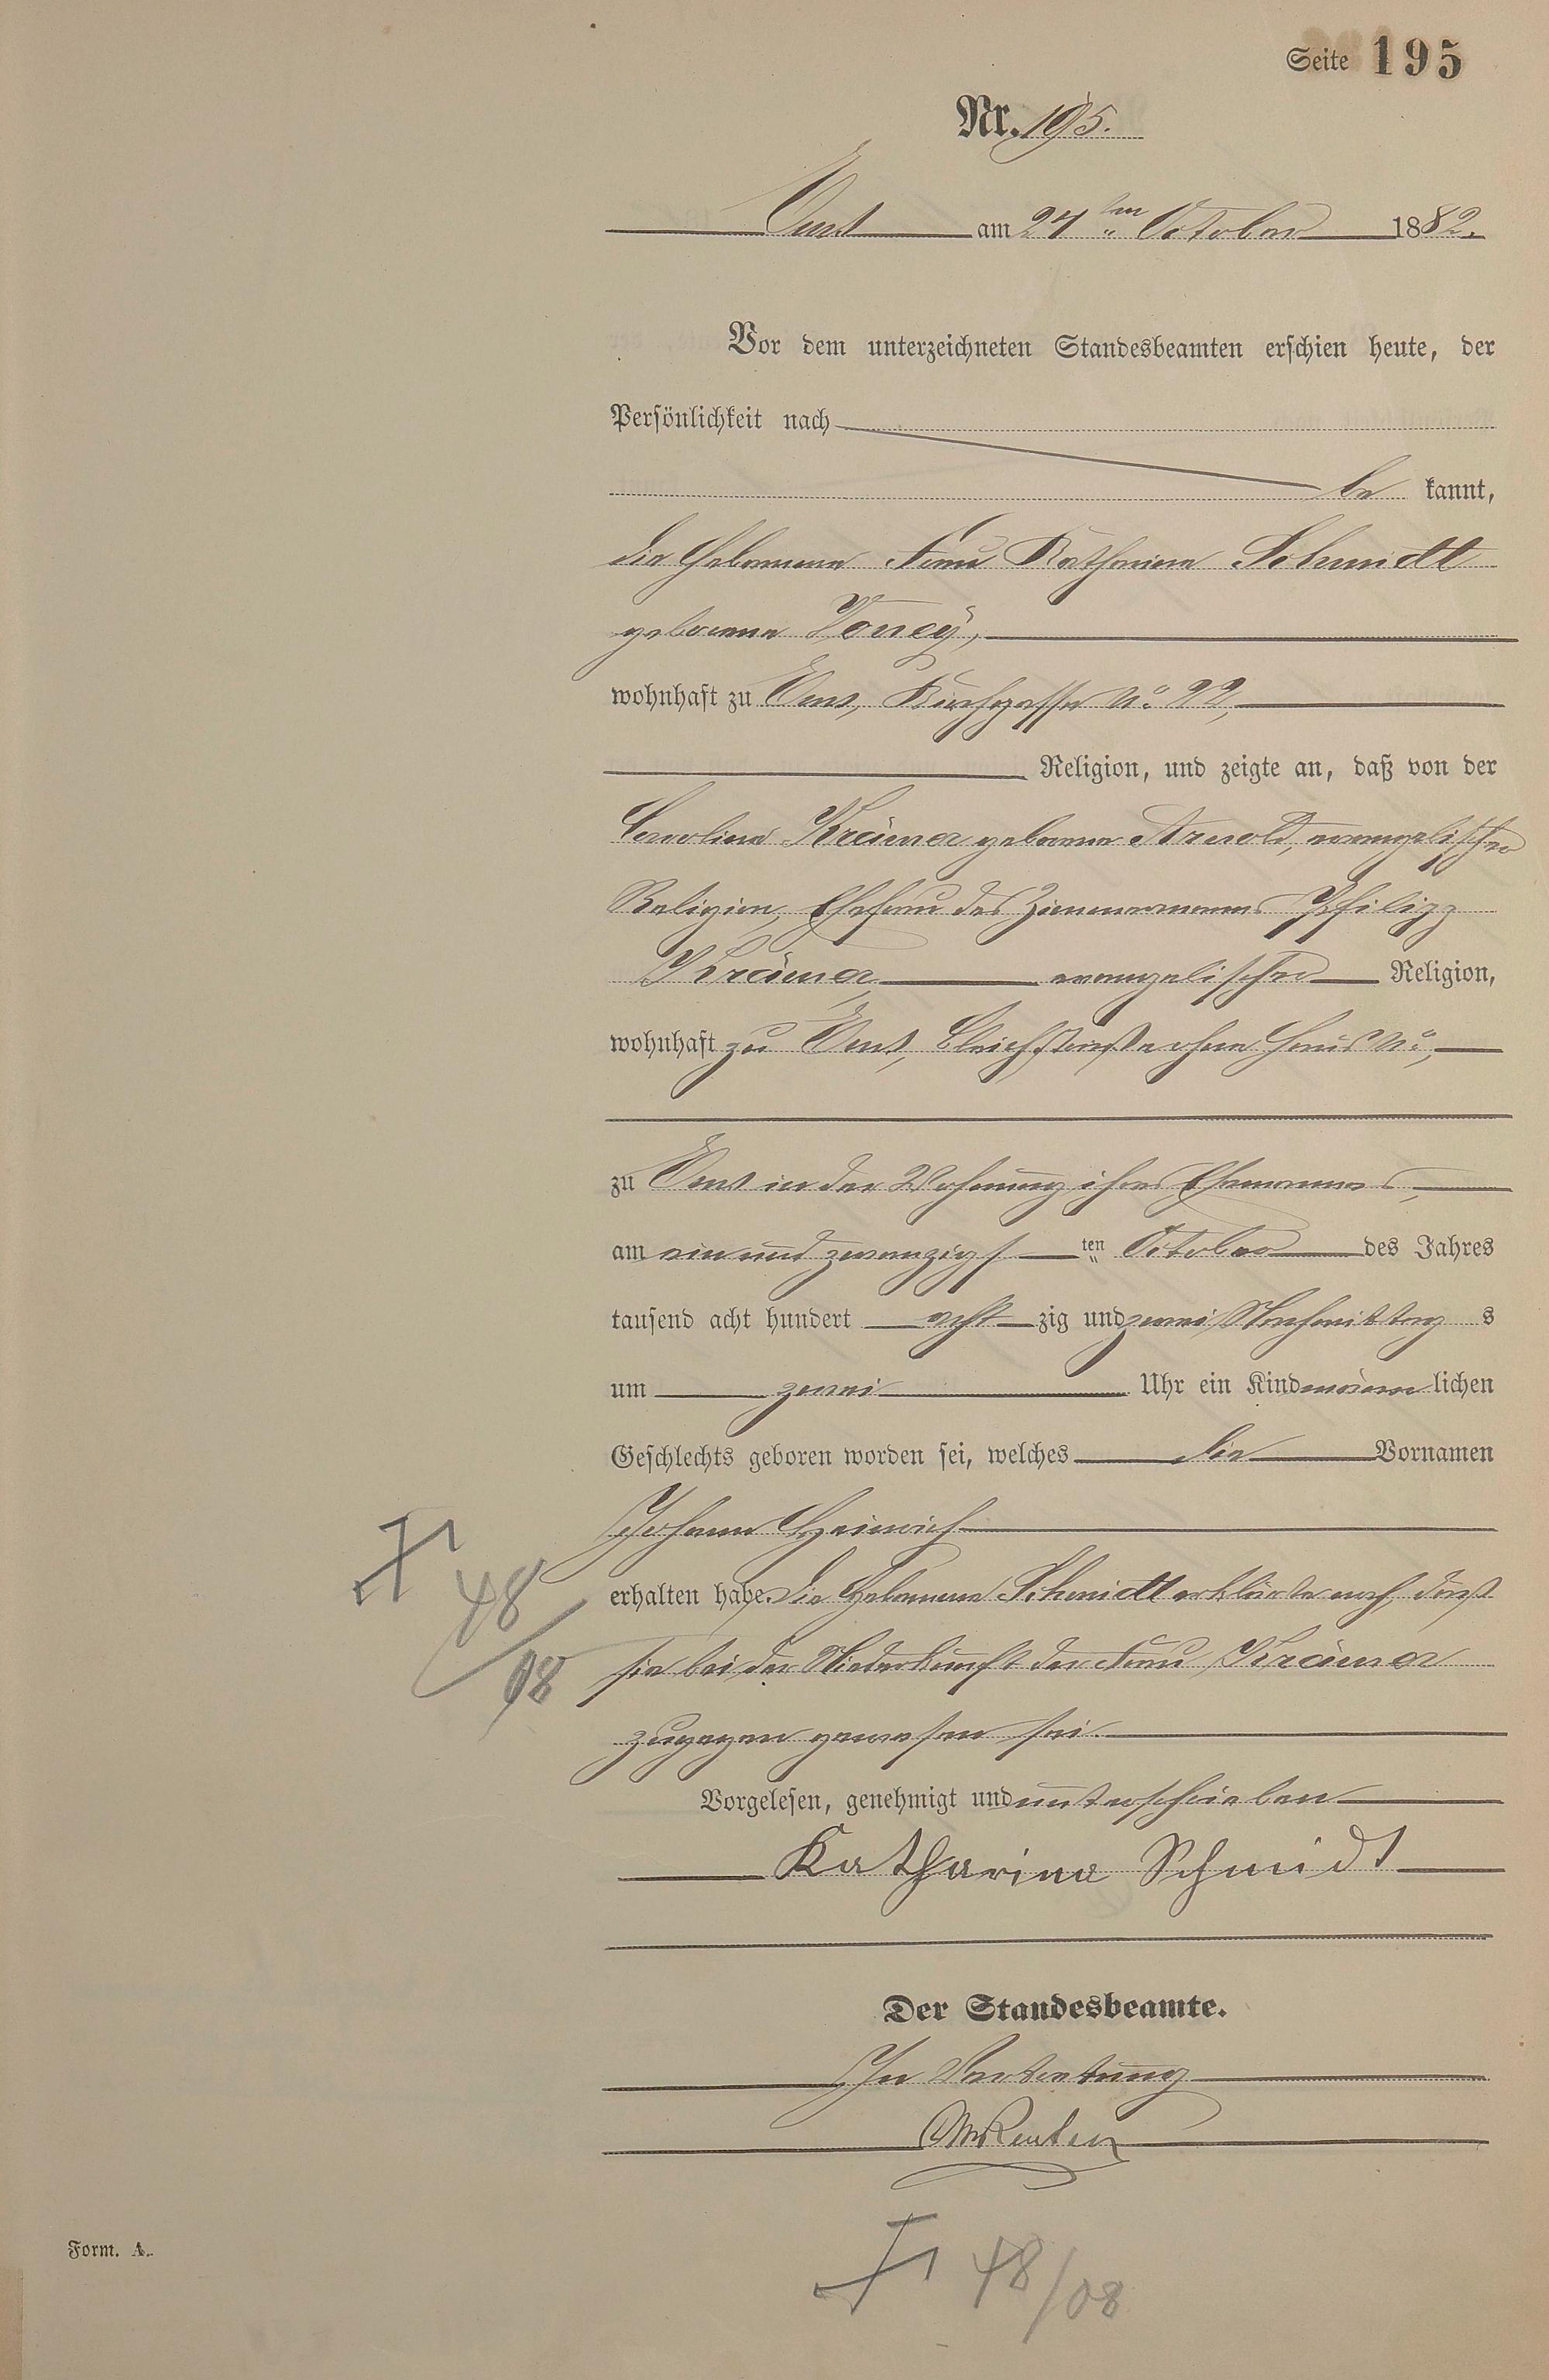 Seite 195
Nr. 195.
Ems am 24ten October 1882.
Vor dem unterzeichneten Standesbeamten erschien heute, der
Persönlichkeit nach
be kannt,
die Hebamme Frau Katharina Schmidt
geborene
wohnhaft zu Ems, Kirchgasse No. 22,
Religion, und zeigte an, daß von der
Caroline Krämer geborene Arnold, evangelischer
Religion, Ehefrau des Zimmermanns Philipp
Krämer evangelischer Religion,
wohnhaft zu Ems, Bleichstraße ohne Haus No.,
zu Ems in der Wohnung ihres Ehemannes,
am ein und zwanzigsten October des Jahres
tausend acht hundert acht zig und zwei Nachmittag s
um zwei Uhr ein Kind männlichen
Geschlechts geboren worden sei, welches die Vornamen
Johann Heinrich
erhalten habe. Die Hebamme Schmidt erklärte noch, daß
sie bei der Niederkunft der Frau Krämer
zugegen gewesen sei.
Vorgelesen, genehmigt und unterschrieben
Katharina Schmidt
Der Standesbeamte.
In Vertretung
48/08
Form. A.
48/08